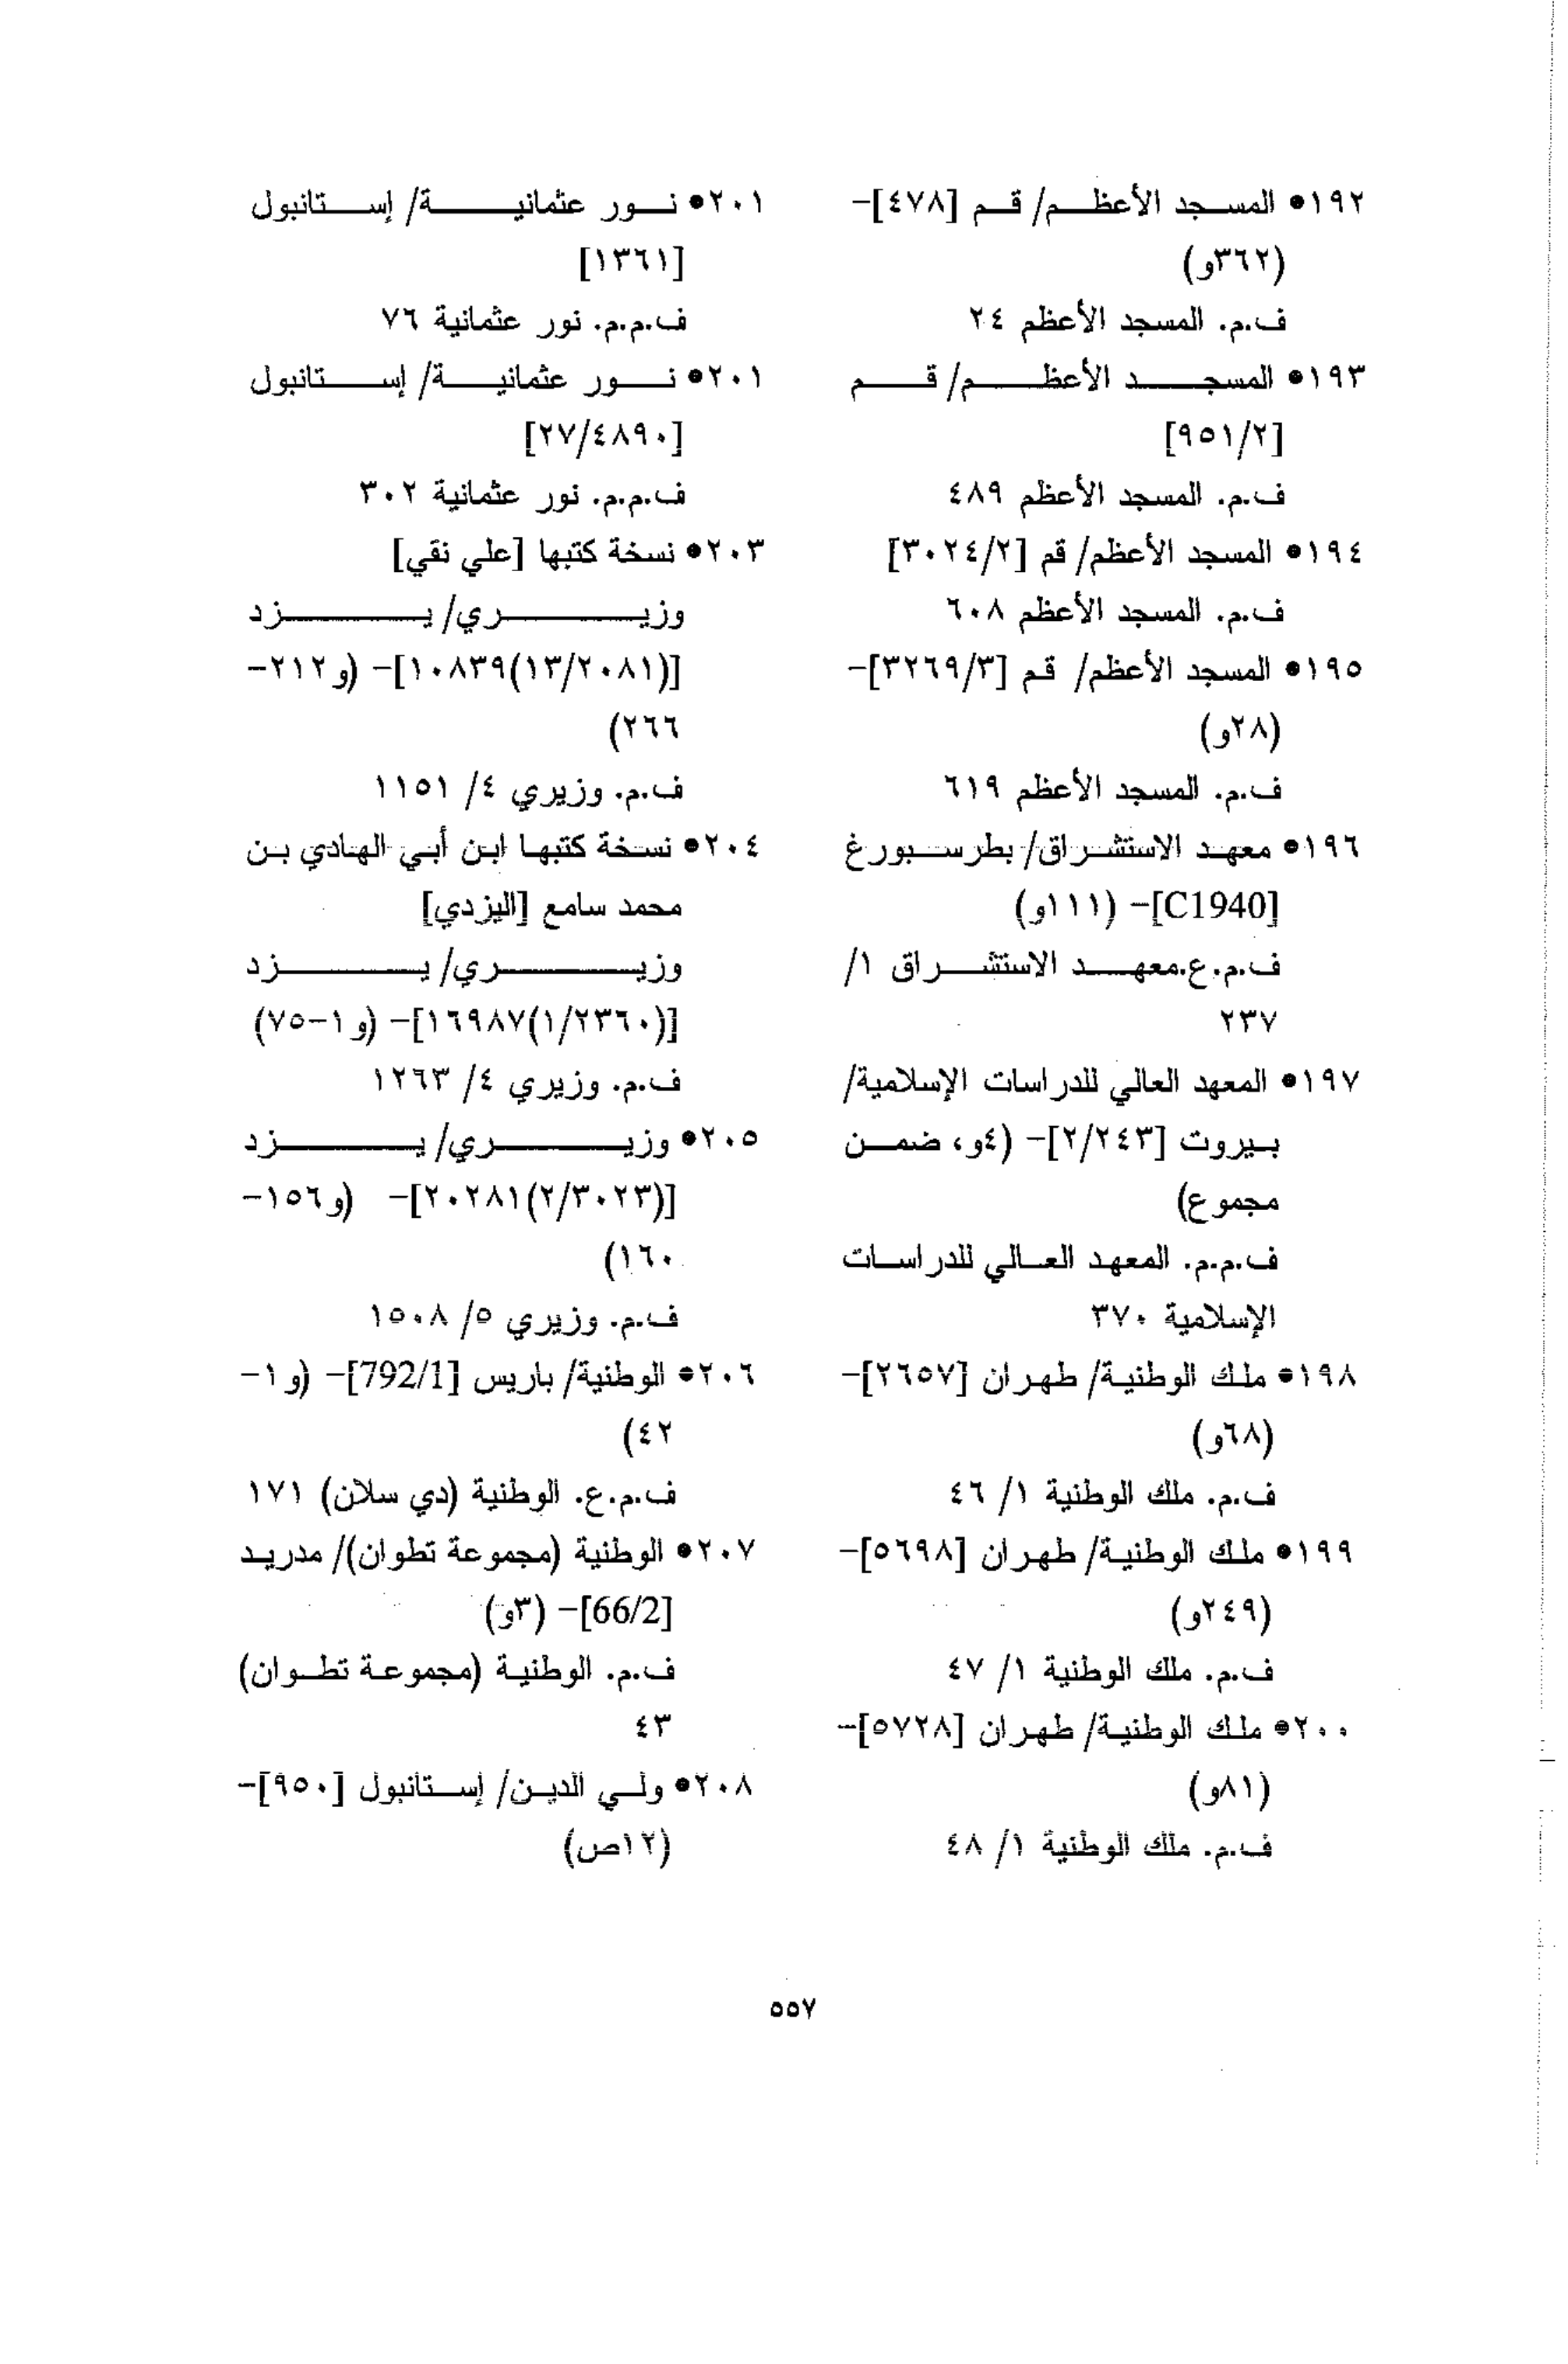 ١٩٢• المسجد الأعظم/ قم [٤٧٨]-
(٣٦٢و)
ف.م. المسجد الأعظم ٢٤
١٩٣• المسجد الأعظم/ قم
[٩٥١/٢]
ف.م. المسجد الأعظم ٤٨٩
١٩٤• المسجد الأعظم/ قم [٣٠٢٤/٢]
ف.م. المسجد الأعظم ٦٠٨
١٩٥• المسجد الأعظم/ قم [٣٢٦٩/٣]-
(٢٨و)
ف.م. المسجد الأعظم ٦١٩
١٩٦• معهد الاستشراق/ بطرسبورغ
[C1940]- (١١١و)
ف.م.ع.معهد الاستشراق ١/
٢٣٧
١٩٧• المعهد العالي للدراسات الإسلامية/
بيروت [٢/٢٤٣]- (٤و، ضمن
مجموع)
ف.م.م. المعهد العالي للدراسات
الإسلامية ٣٧٠
١٩٨• ملك الوطنية/ طهران [٢٦٥٧]-
(٦٨و)
ف.م. ملك الوطنية ١/ ٤٦
١٩٩• ملك الوطنية/ طهران [٥٦٩٨]-
(٢٤٩و)
ف.م. ملك الوطنية ١/ ٤٧
٢٠٠• ملك الوطنية/ طهران [٥٧٢٨]-
(٨١و)
ف.م. ملك الوطنية ١/ ٤٨
٢٠١• نور عثمانية/ إستانبول
[١٣٦١]
ف.م.م. نور عثمانية ٧٦
٢٠١• نور عثمانية/ إستانبول
[٢٧/٤٨٩٠]
ف.م.م. نور عثمانية ٣٠٢
٢٠٣• نسخة كتبها [علي نقي]
وزيري/ يزد
[(١٣/٢٠٨١)١٠٨٣٩]- (و٢١٢-
٢٦٦)
ف.م. وزيري ٤/ ١١٥١
٢٠٤• نسخة كتبها ابن أبي الهادي بن
محمد سامع [اليزدي]
وزيري/ يزد
[(١/٢٣٦٠)١٦٩٨٧]- (و١-٧٥)
ف.م. وزيري ٤/ ١٢٦٣
٢٠٥• وزيري/ يزد
[(٢/٣٠٢٣)٢٠٢٨١]- (و١٥٦-
١٦٠)
ف.م. وزيري ٥/ ١٥٠٨
٢٠٦• الوطنية/ باريس [792/1]- (و١-
٤٢)
ف.م.ع. الوطنية (دي سلان) ١٧١
٢٠٧• الوطنية (مجموعة تطوان)/ مدريد
[66/2]- (٣و)
ف.م. الوطنية (مجموعة تطوان)
٤٣
٢٠٨• ولي الدين/ إستانبول [٩٥٠]-
(١٢ص)
٥٥٧